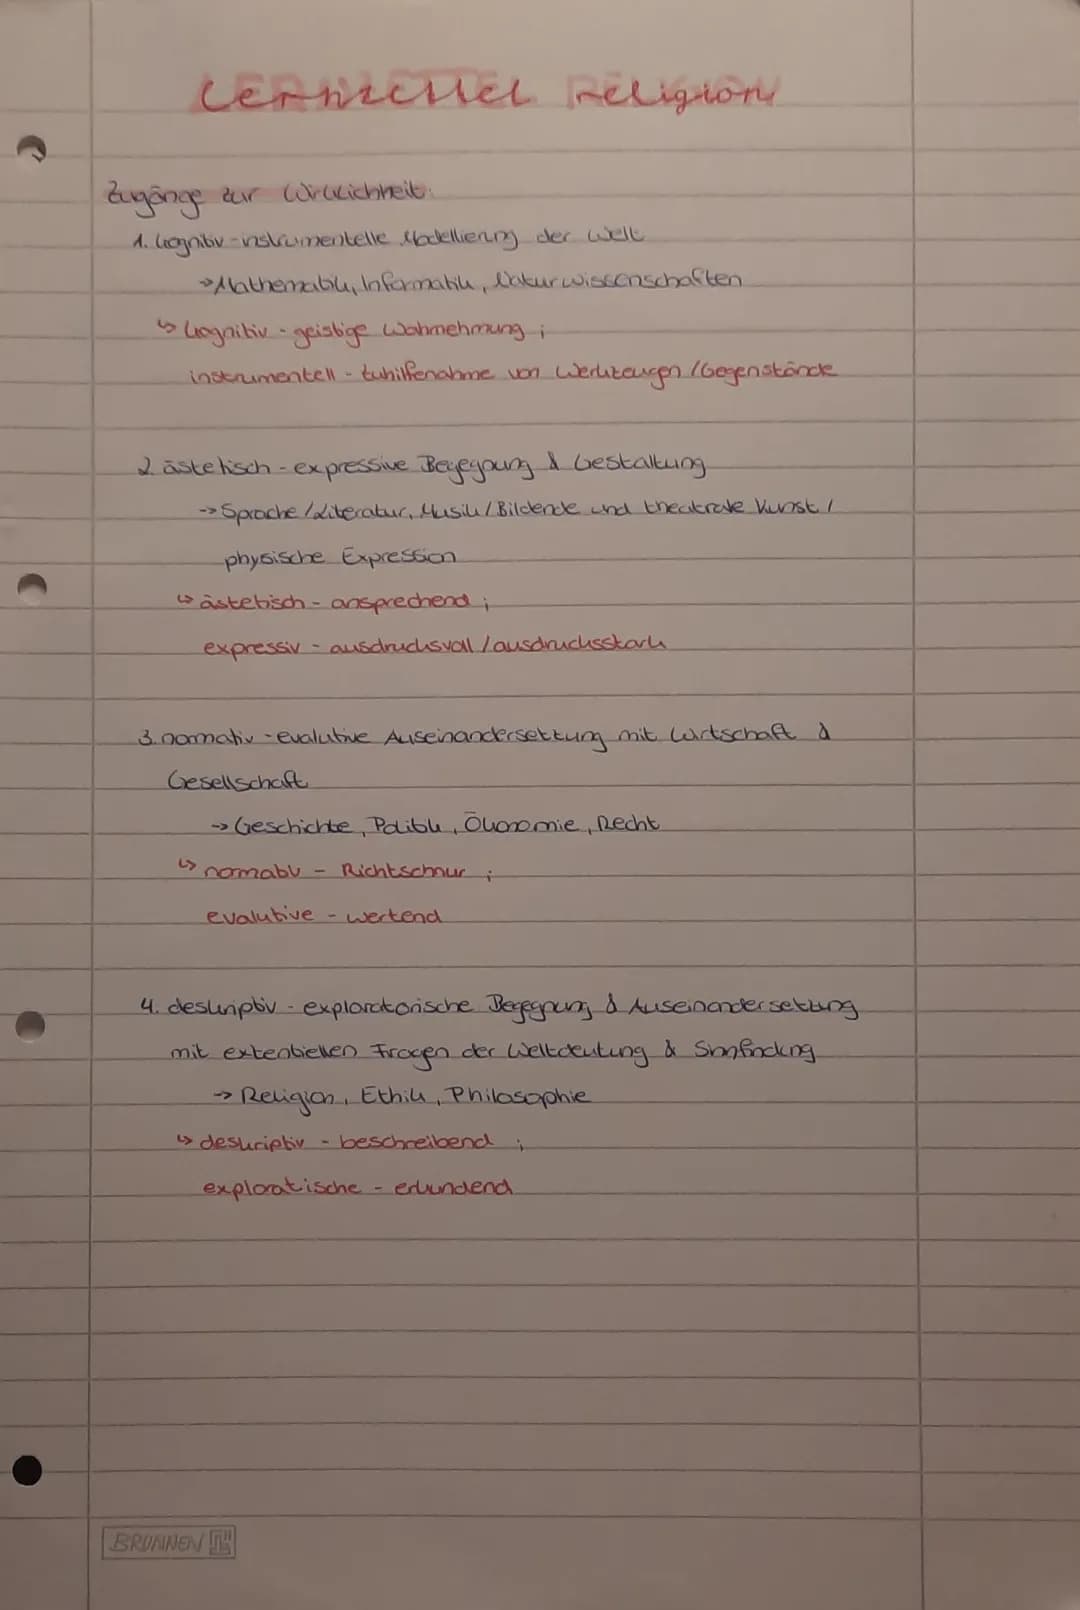 Lernzettel Religion
Zugänge zur Wirklichkeit:
1. kognitiv-instrumentelle Modellierung der Welt
→ Mathematik, Informatik, Naturwissenschaften
↳ kognitiv - geistige Wahrnehmung ;
instrumentell - zuhilfenahme von Werkzeugen / Gegenstände
2. ästetisch - expressive Begegnung & Gestaltung
→ Sprache / Literatur, Musik / Bildende und theatrale Kunst /
physische Expression
↳ ästetisch - ansprechend ;
expressiv - ausdrucksvoll / ausdrucksstark
3. normativ - evalutive Auseinandersetzung mit Wirtschaft &
Gesellschaft
→ Geschichte, Politik, Ökonomie, Recht
↳ normativ - Richtschnur ;
evalutive - wertend
4. deskriptiv - exploratorische Begegnung & Auseinandersetzung
mit extentiellen Fragen der Weltdeutung & Sinnfindung
→ Religion, Ethik, Philosophie
↳ deskriptiv - beschreibend ;
exploratische - erkundend
BRUNNEN